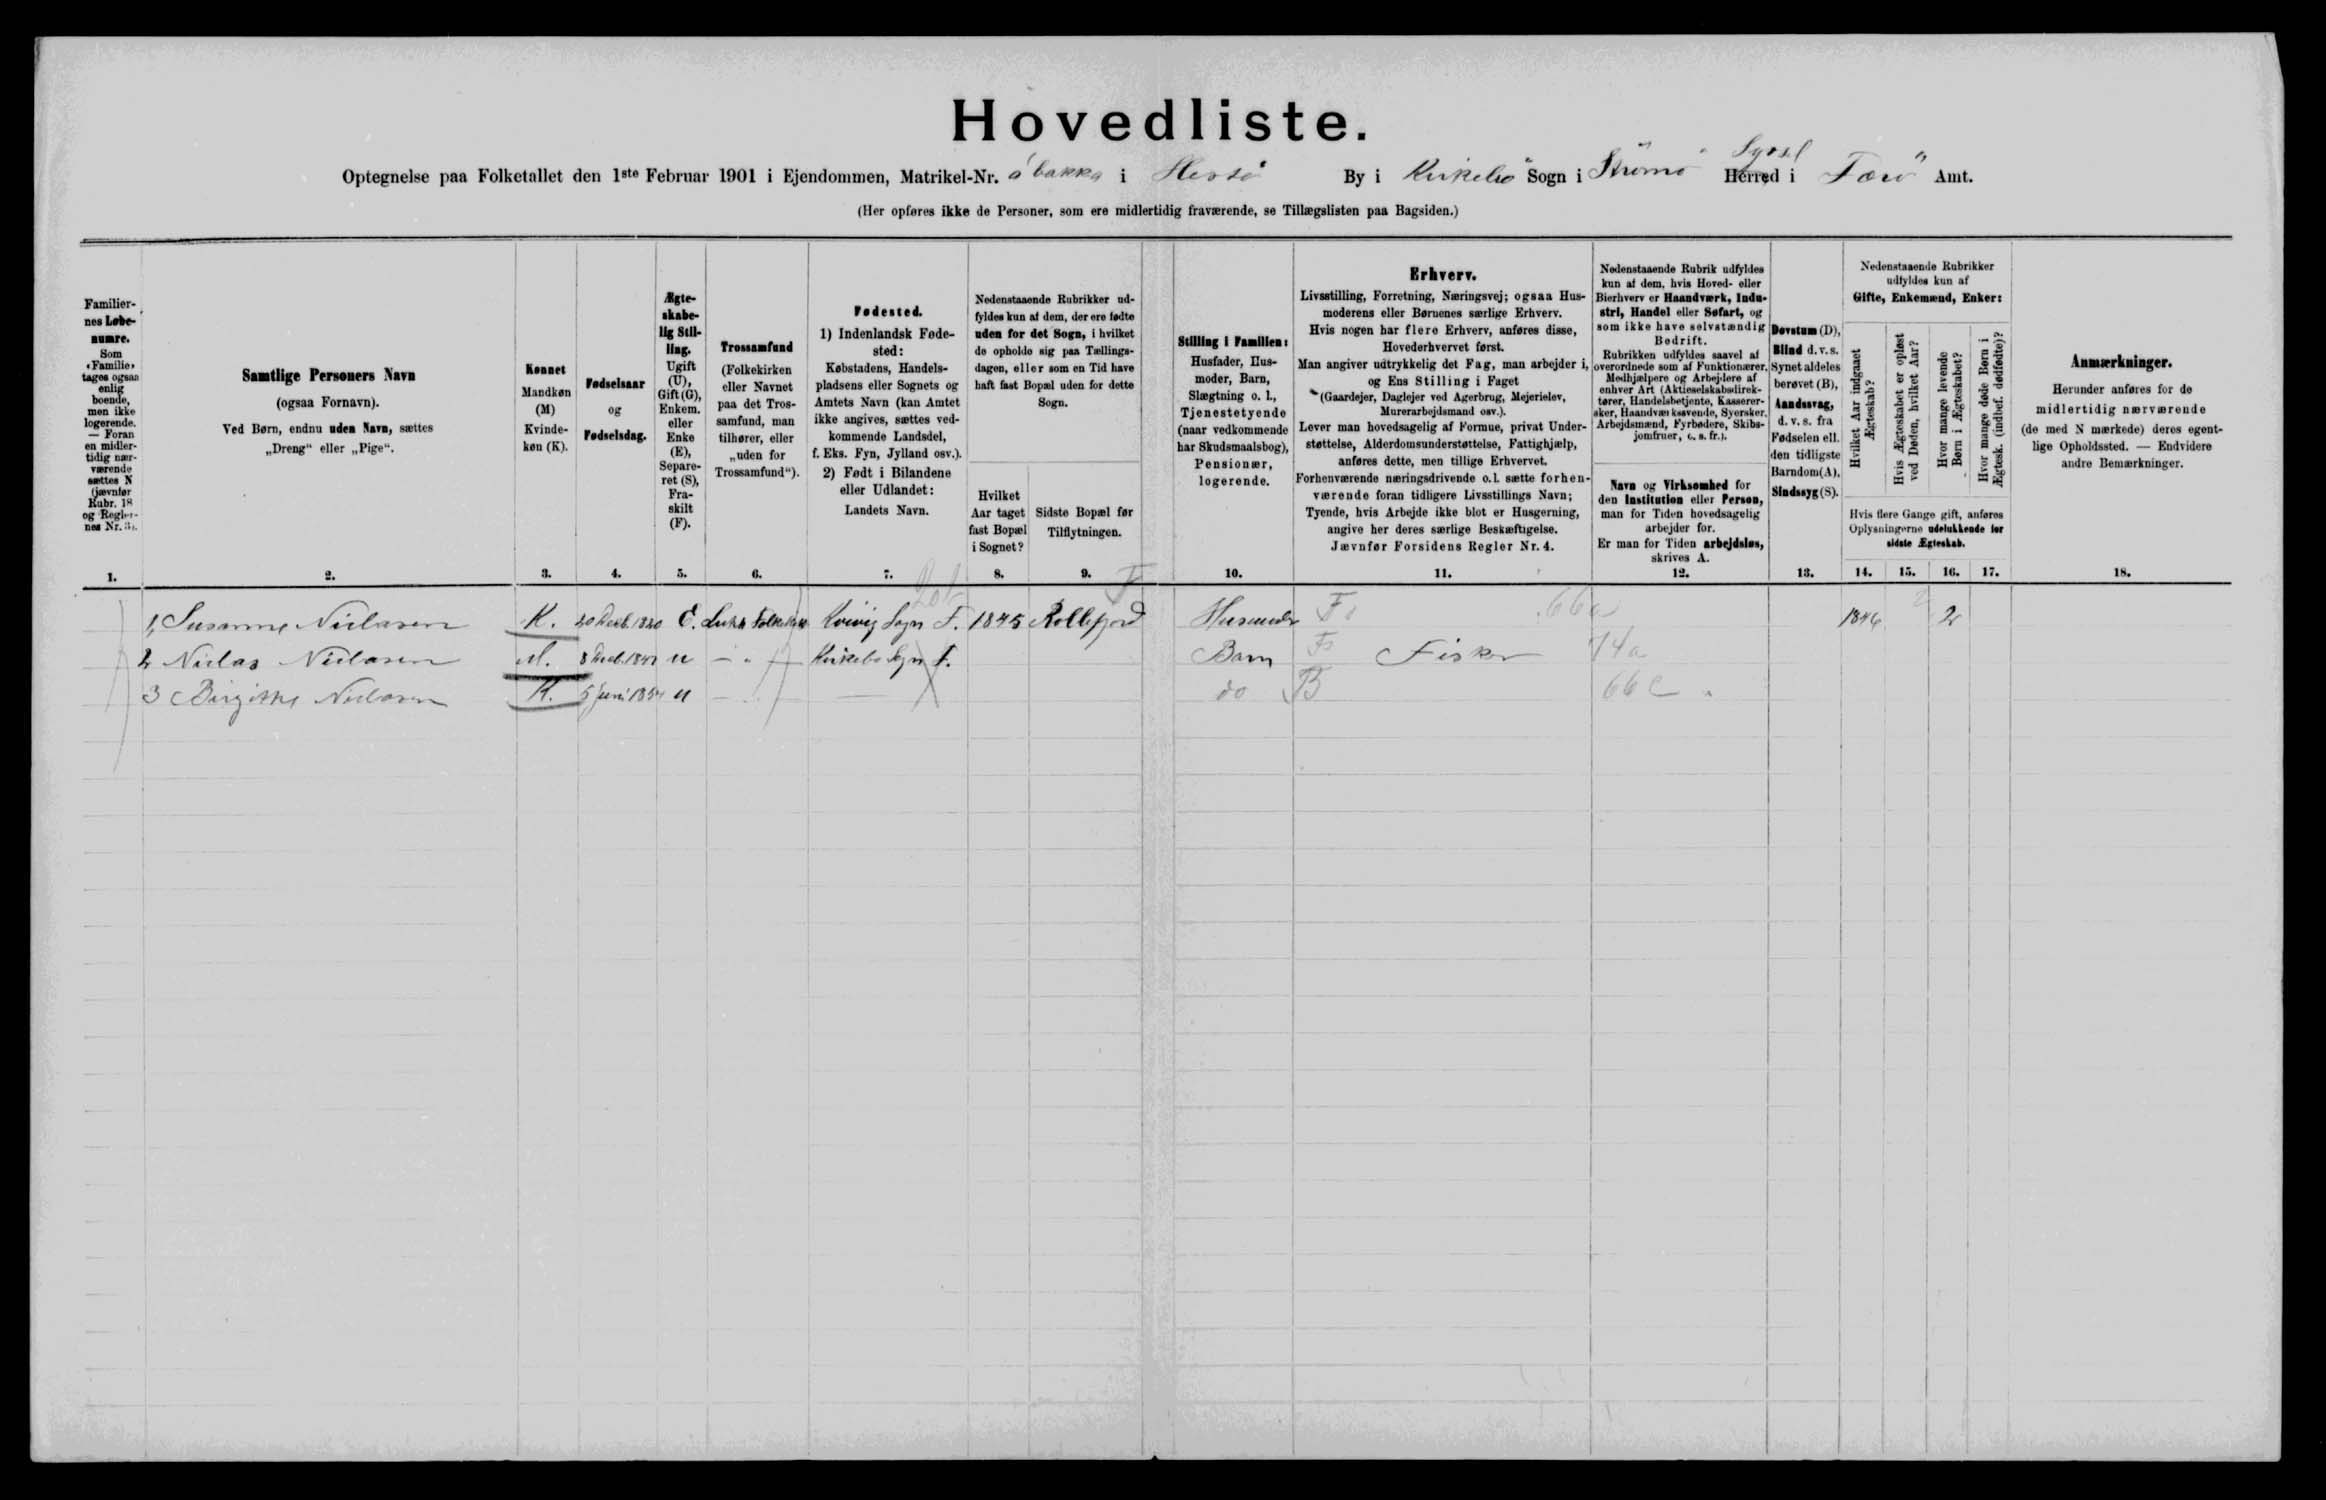 Hovedliste.
Optegnelse paa Folketallet den 1ste Februar 1901 i Ejendommen, Matrikel-Nr. á bakka i Hestö By i Kirkebö Sogn i Strömö Sysel Herred i Færö Amt.
(Her opføres ikke de Personer, som ere midlertidig fraværende, se Tillægslisten paa Bagsiden.)
Familier-
nes Løbe-
numre.
Som
«Familie»
tages ogsaa
enlig
boende,
men ikke
logerende.
— Foran
en midler-
tidig nær-
værende
sættes N
(jævnfør
Rubr. 18
og Regler-
nes Nr. 3).
Samtlige Personers Navn
(ogsaa Fornavn).
Ved Børn, endnu uden Navn, sættes
„Dreng“ eller „Pige“.
Kønnet
Mandkøn
(M)
Kvinde-
køn (K).
Fødselsaar
og
Fødselsdag.
Ægte-
skabe-
lig Stil-
ling.
Ugift
(U),
Gift (G),
Enkem.
eller
Enke
(E),
Separe-
ret (S),
Fra-
skilt
(F).
Trossamfund
(Folkekirken
eller Navnet
paa det Tros-
samfund, man
tilhører, eller
„uden for
Trossamfund“).
Fødested.
1) Indenlandsk Føde-
sted:
Købstadens, Handels-
pladsens eller Sognets og
Amtets Navn (kan Amtet
ikke angives, sættes ved-
kommende Landsdel,
f. Eks. Fyn, Jylland osv.).
2) Født i Bilandene
eller Udlandet:
Landets Navn.
Nedenstaaende Rubrikker ud-
fyldes kun af dem, der ere fødte
uden for det Sogn, i hvilket
de opholde sig paa Tællings-
dagen, eller som en Tid have
haft fast Bopæl uden for dette
Sogn.
Hvilket
Aar taget
fast Bopæl
i Sognet?
Sidste Bopæl før
Tilflytningen.
Stilling i Familien:
Husfader, Hus-
moder, Barn,
Slægtning o. l.,
Tjenestetyende
(naar vedkommende
har Skudsmaalsbog),
Pensionær,
logerende.
Erhverv.
Livsstilling, Forretning, Næringsvej; ogsaa Hus-
moderens eller Børnenes særlige Erhverv.
Hvis nogen har flere Erhverv, anføres disse,
Hovederhvervet først.
Man angiver udtrykkelig det Fag, man arbejder i,
og Ens Stilling i Faget
(Gaardejer, Daglejer ved Agerbrug, Mejerielev,
Murerarbejdsmand osv.).
Lever man hovedsagelig af Formue, privat Under-
støttelse, Alderdomsunderstøttelse, Fattighjælp,
anføres dette, men tillige Erhvervet.
Forhenværende næringsdrivende o. l. sætte forhen-
værende foran tidligere Livsstillings Navn;
Tyende, hvis Arbejde ikke blot er Husgerning,
angive her deres særlige Beskæftigelse.
Jævnfør Forsidens Regler Nr. 4.
Nedenstaaende Rubrik udfyldes
kun af dem, hvis Hoved- eller
Bierhverv er Haandværk, Indu-
stri, Handel eller Søfart, og
som ikke have selvstændig
Bedrift.
Rubrikken udfyldes saavel af
overordnede som af Funktionærer,
Medhjælpere og Arbejdere af
enhver Art (Aktieselskabsdirek-
tører, Handelsbetjente, Kasserer-
sker, Haandværkssvende, Syersker,
Arbejdsmænd, Fyrbødere, Skibs-
jomfruer, o. s. fr.).
Navn og Virksomhed for
den Institution eller Person,
man for Tiden hovedsagelig
arbejder for.
Er man for Tiden arbejdsløs,
skrives A.
Døvstum (D),
Blind d. v. s.
Synet aldeles
berøvet (B),
Aandssvag,
d. v. s. fra
Fødselen ell.
den tidligste
Barndom (A),
Sindssyg (S).
Nedenstaaende Rubrikker
udfyldes kun af
Gifte, Enkemænd, Enker:
Hvilket Aar indgaaet
Ægteskab?
Hvis Ægteskabet er opløst
ved Døden, hvilket Aar?
Hvor mange levende
Børn i Ægteskabet?
Hvor mange døde Børn i
Ægtesk. (indbef. dødfødte)?
Hvis flere Gange gift, anføres
Oplysningerne udelukkende for
sidste Ægteskab.
Anmærkninger.
Herunder anføres for de
midlertidig nærværende
(de med N mærkede) deres egent-
lige Opholdssted. — Endvidere
andre Bemærkninger.
1. 2. 3. 4. 5. 6. 7. 8. 9. 10. 11. 12. 13. 14. 15. 16. 17. 18.
1, Susanne Niclasen K. 20 Decb. 1820 E. Luth Folkekirk Kvivig Sogn F. 1845 Kollefjord Husmoder F 66a 1846 2
2 Niclas Niclasen M. 8 Decb. 1847 u — " — Kirkebø Sogn F. Barn F Fisker 74a
3 Birgitha Niclasen K. 5 Juni 1854 u — " — — do B 66 c